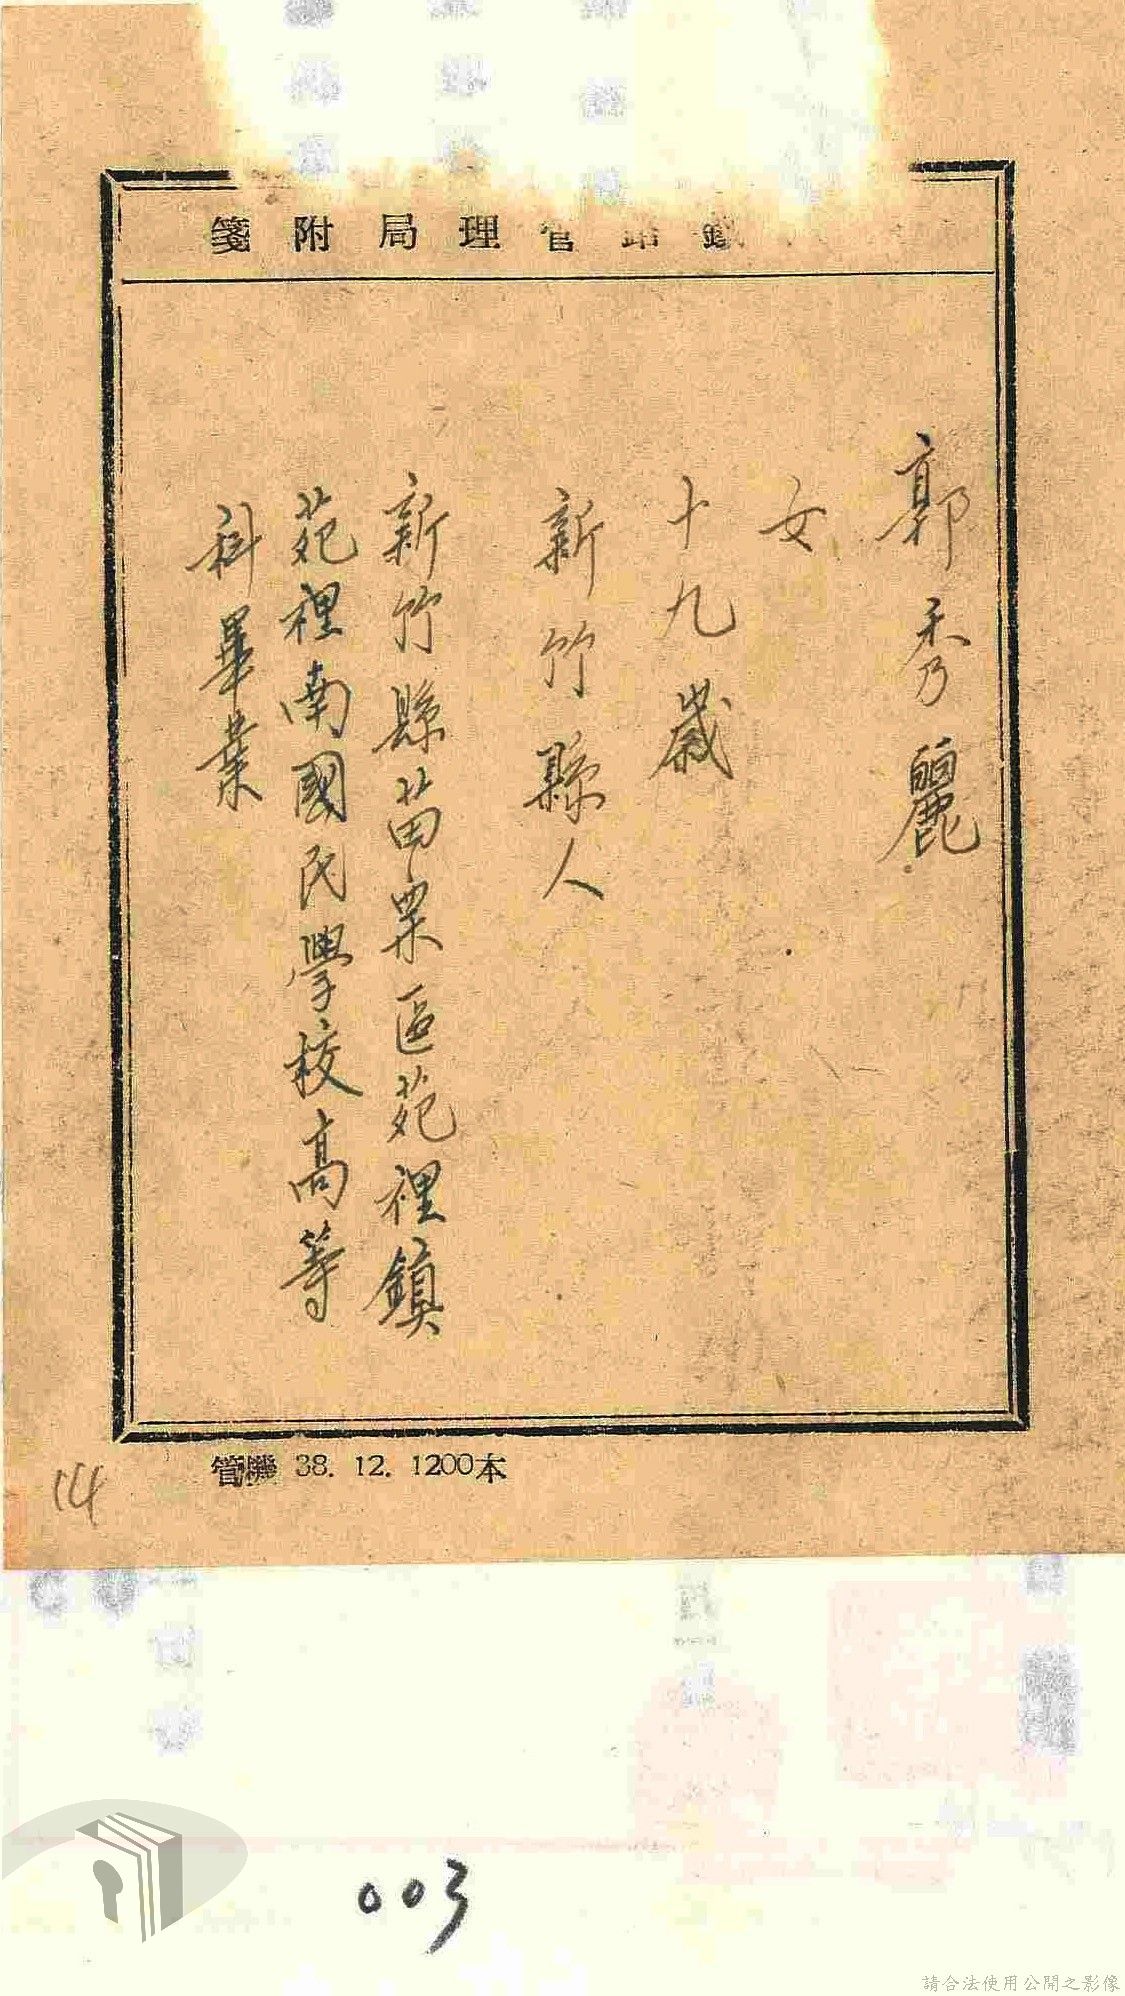 鐵路管理局附箋
郭秀麗
女
十九歲
新竹縣人
新竹縣苗栗區苑裡鎮
苑裡南國民學校高等
科畢業
管機 38. 12. 1200本
114
003
請合法使用公開之影像